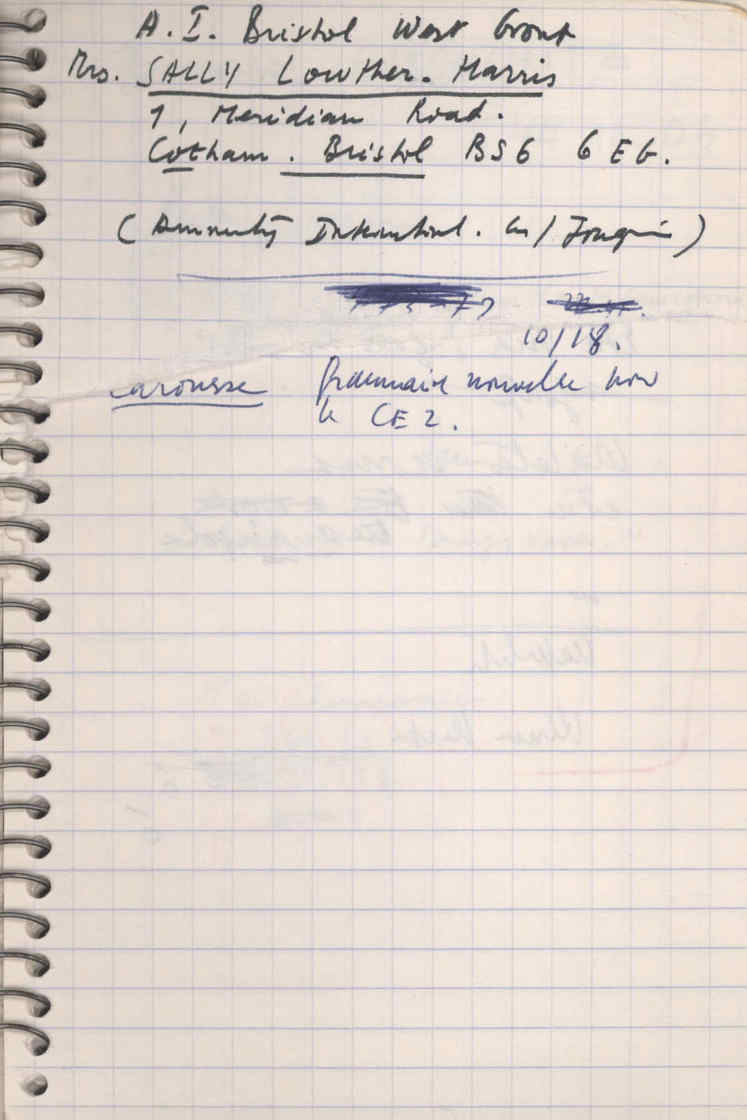 A.I. Bristol West Group
Mrs. SALLY Lowther-Harris
1, Meridian Road.
Cotham. Bristol BS6 6EG.
(Amnesty International.
10/18.
Larousse Grammaire nouvelle pour
le CE2.